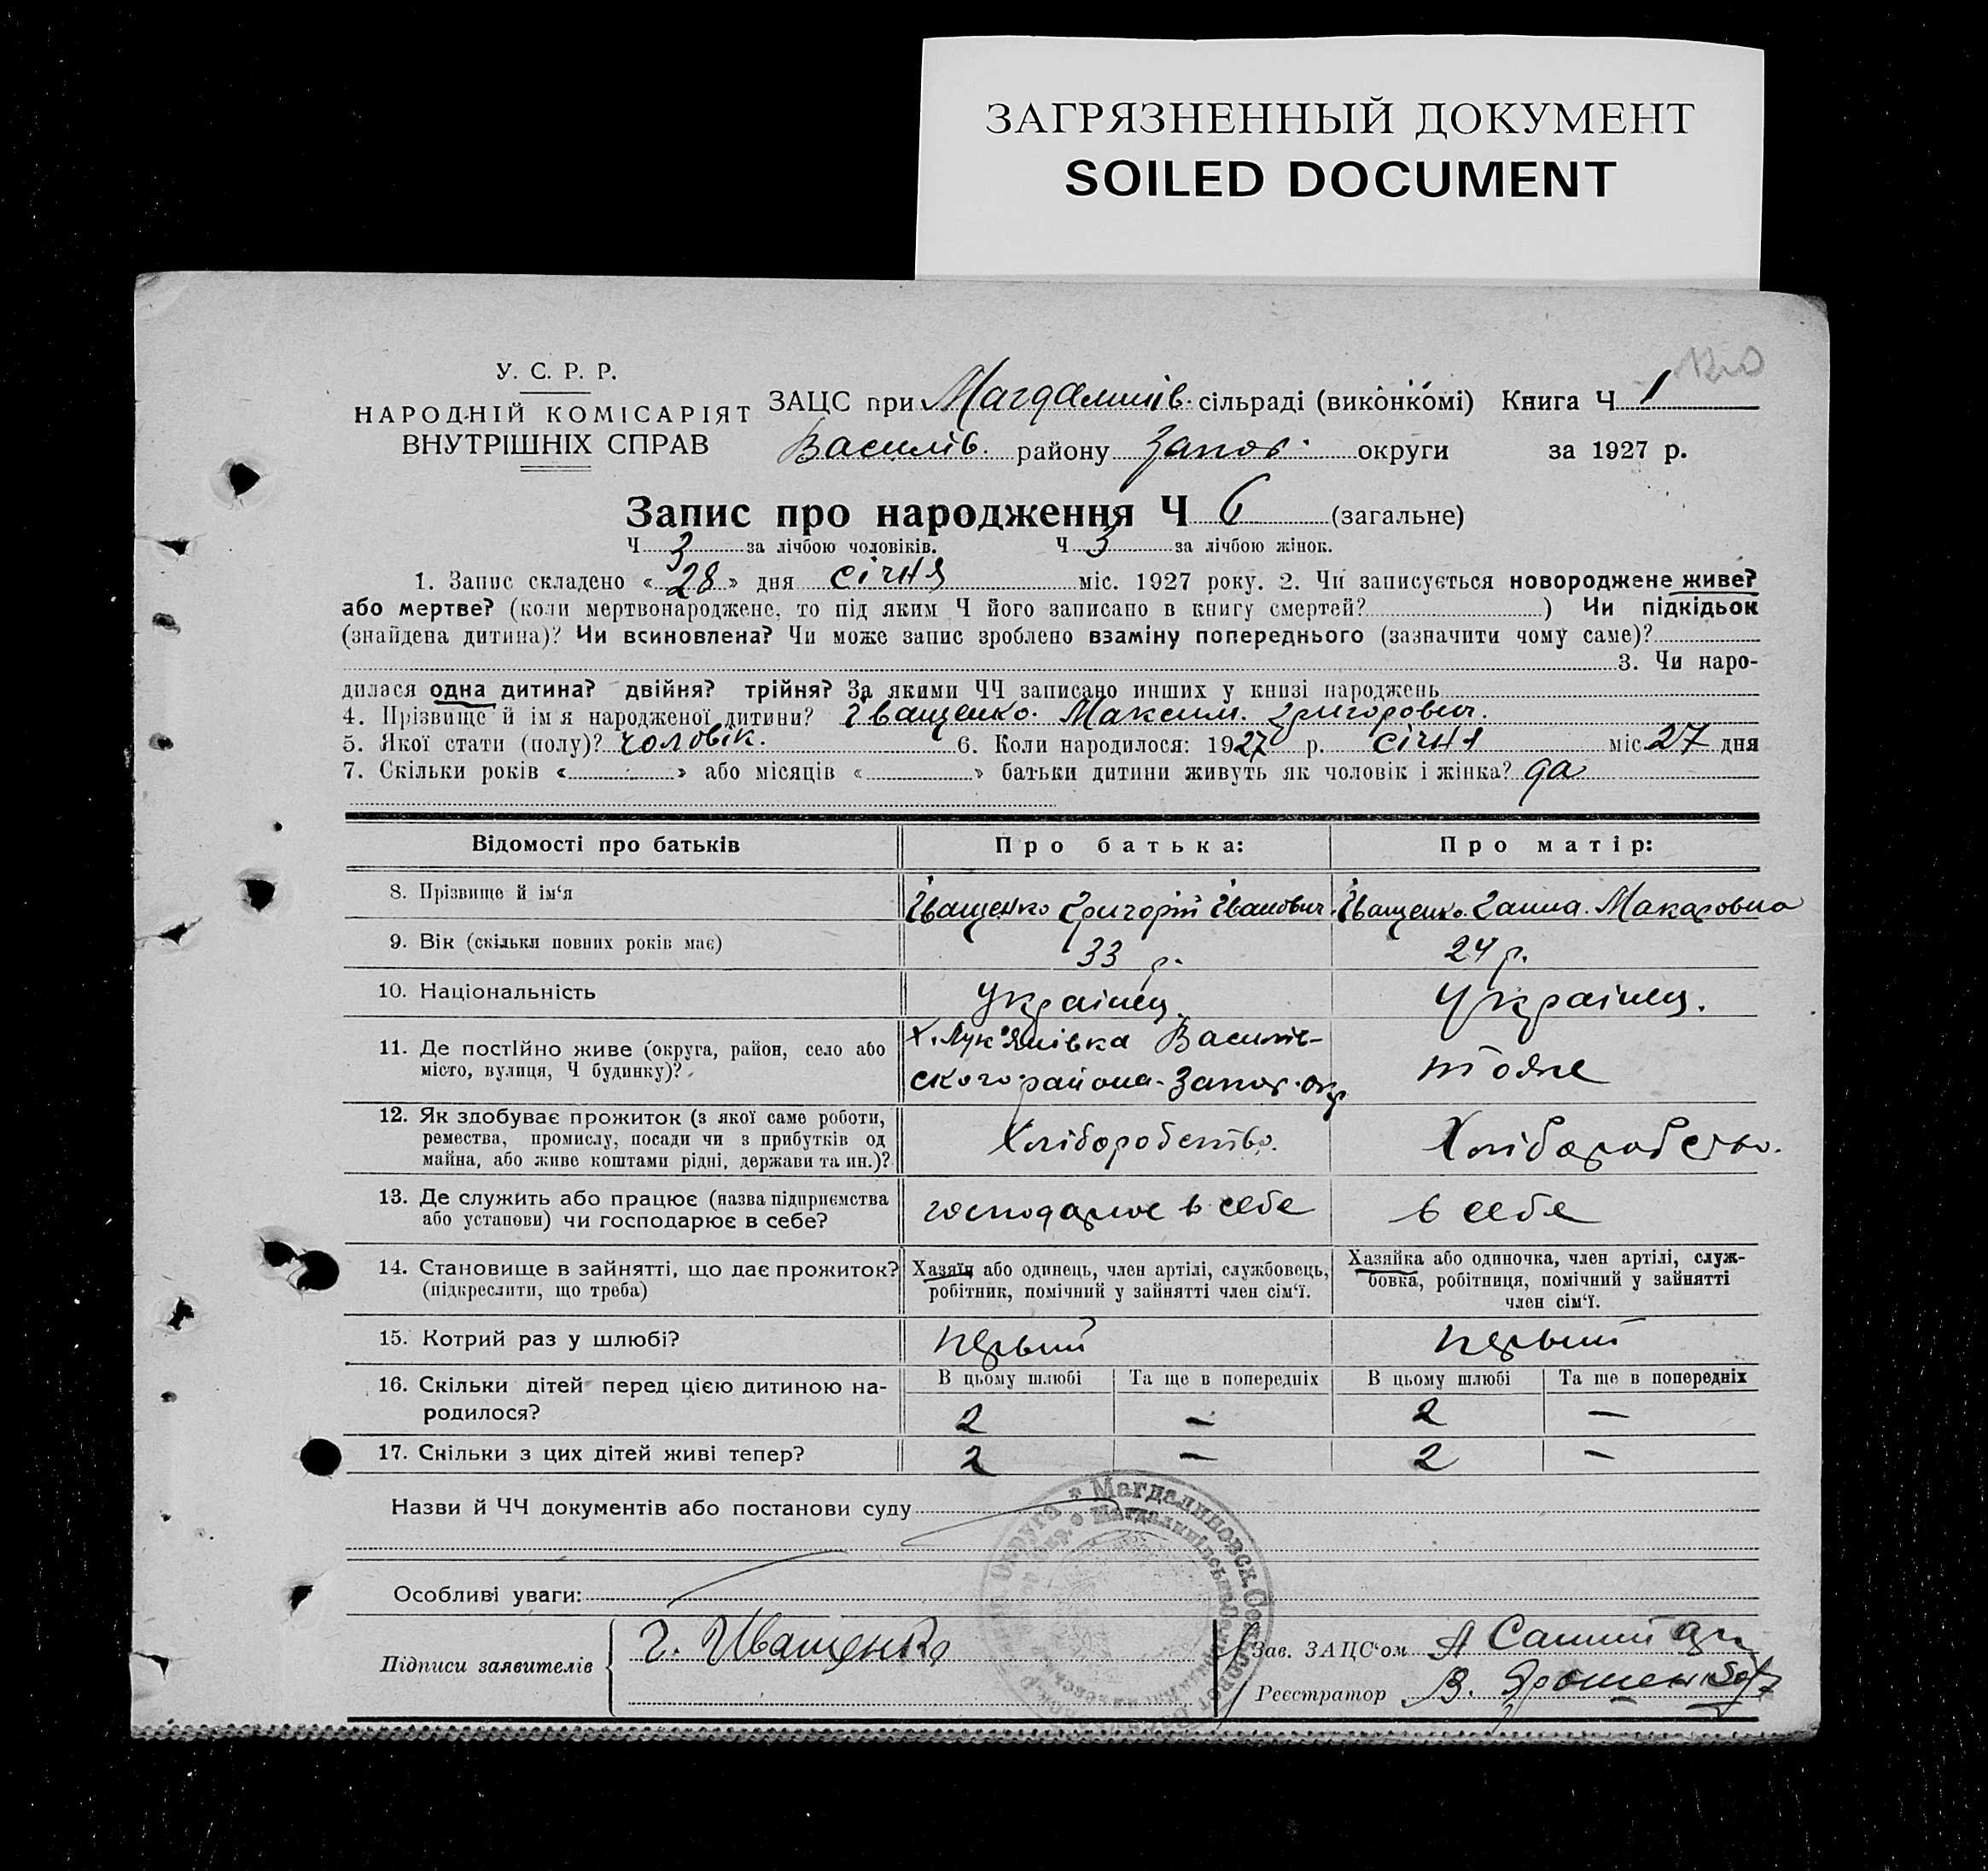 ЗАГРЯЗНЕННЫЙ ДОКУМЕНТ
SOILED DOCUMENT
У. С. Р. Р.
НАРОДНІЙ КОМІСАРІЯТ
ВНУТРІШНІХ СПРАВ
ЗАЦС при Магдалинів. сільраді (виконкомі) Книга Ч 1
Василів. району Запор. округи за 1927 р.
Запис про народження Ч 6 (загальне)
Ч 3 за лічбою чоловіків. Ч 3 за лічбою жінок.
1. Запис складено «28» дня січня міс. 1927 року. 2. Чи записується новороджене живе?
або мертве? (коли мертвонароджене, то під яким Ч його записано в книгу смертей? ) Чи підкідьок
(знайдена дитина)? Чи всиновлена? Чи може запис зроблено взаміну попереднього (зазначити чому саме)?
3. Чи наро-
дилася одна дитина? двійня? трійня? За якими ЧЧ записано инших у книзі народжень
4. Прізвище й ім'я народженої дитини? Іващенко. Максим. Григорович.
5. Якої стати (полу)? чоловік. 6. Коли народилося: 1927 р. січня міс. 27 дня
7. Скільки років « » або місяців « » батьки дитини живуть як чоловік і жінка? да
Відомості про батьків Про батька: Про матір:
8. Прізвище й ім'я Іващенко Григорій Іванович. Іващенко. Ганна. Макаровна
9. Вік (скільки повних років має) 33 р. 24 р.
10. Національність Українец. Українец.
11. Де постійно живе (округа, район, село або
місто, вулиця, Ч будинку)?
х. Лук'янівка Василів-
ского района. Запор. окр
тоже
12. Як здобуває прожиток (з якої саме роботи,
ремества, промислу, посади чи з прибутків од
майна, або живе коштами рідні, держави та ин.)?
Хліборобство. Хліборобство.
13. Де служить або працює (назва підприємства
або установи) чи господарює в себе?
господарює в себе в себе
14. Становище в зайнятті, що дає прожиток?
(підкреслити, що треба)
Хазяїн або одинець, член артілі, службовець,
робітник, помічний у зайнятті член сім'ї.
Хазяйка або одиночка, член артілі, служ-
бовка, робітниця, помічний у зайнятті
член сім'ї.
15. Котрий раз у шлюбі? первий первий
16. Скільки дітей перед цією дитиною на-
родилося?
В цьому шлюбі Та ще в попередніх В цьому шлюбі Та ще в попередніх
2 — 2 —
17. Скільки з цих дітей живі тепер? 2 — 2 —
Назви й ЧЧ документів або постанови суду
Особливі уваги:
Підписи заявителів Г. Иващенко
Зав. ЗАЦС'ом А
Реєстратор В. Ярошенко